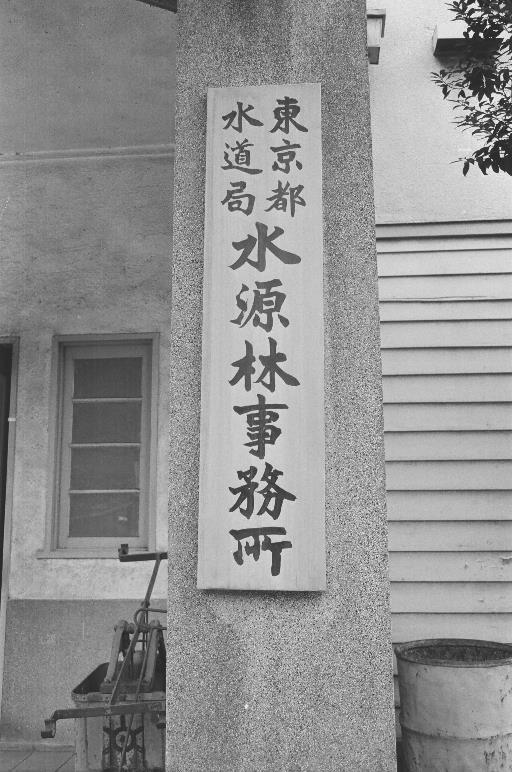 東京都
水道局
水源林事務所